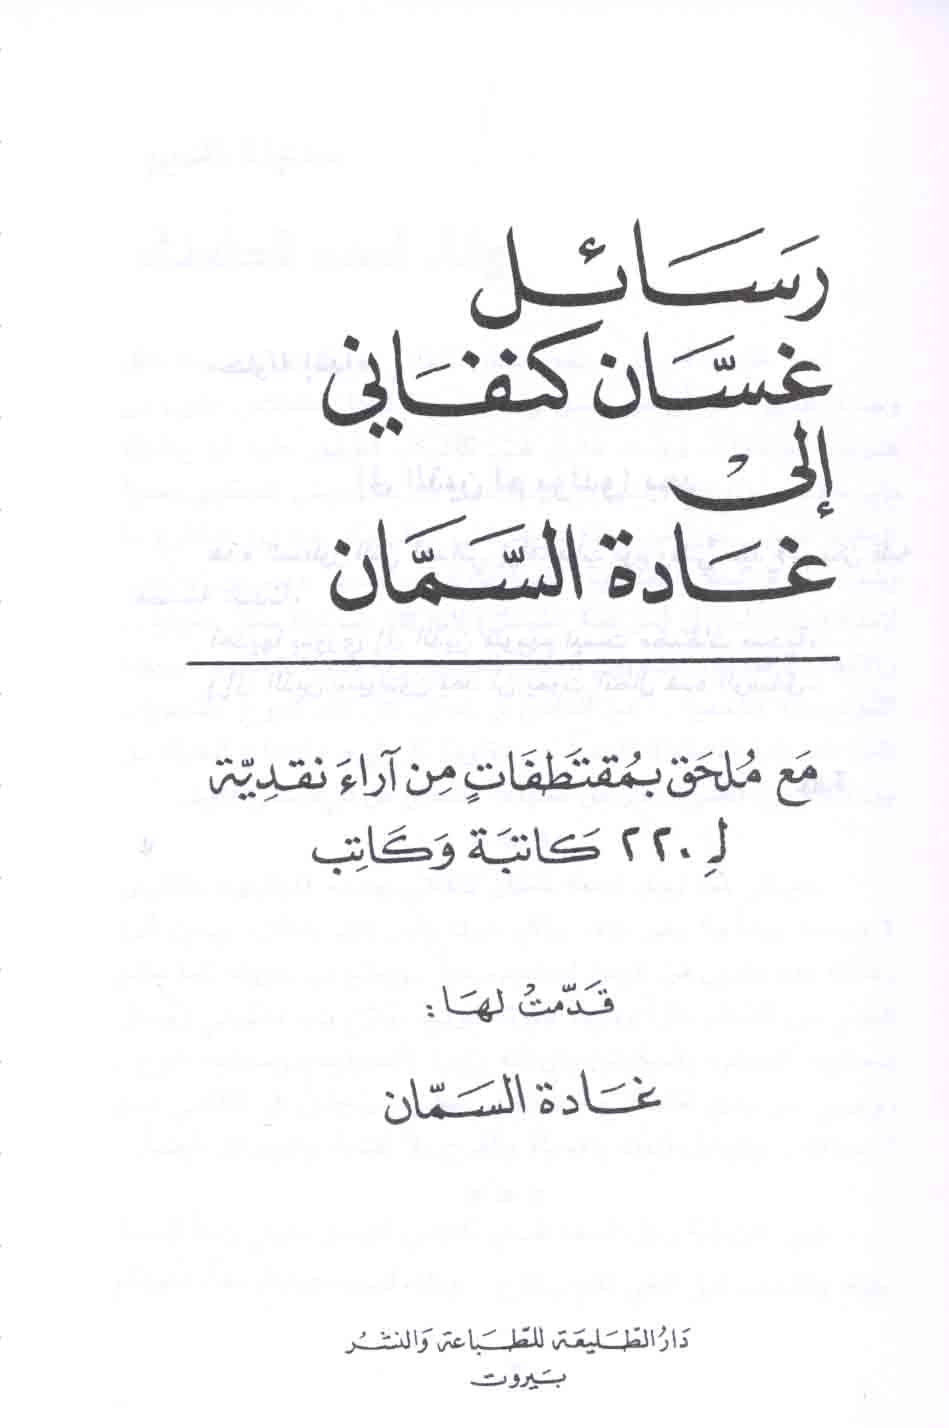 رَسَائِل
غسَّان كنفَاني
إلىْ
غَادة السَّمَّان
مَع مُلحَق بمُقتَطفَاتٍ مِن آراءَ نقدِيّة
لِـ ٢٢٠ كَاتبَة وَكَاتِب
قَدّمتْ لهَا:
غَادة السَمّان
دَارُ الطَّليعَة للطِّبَاعَة وَالنشْر
بَيروت